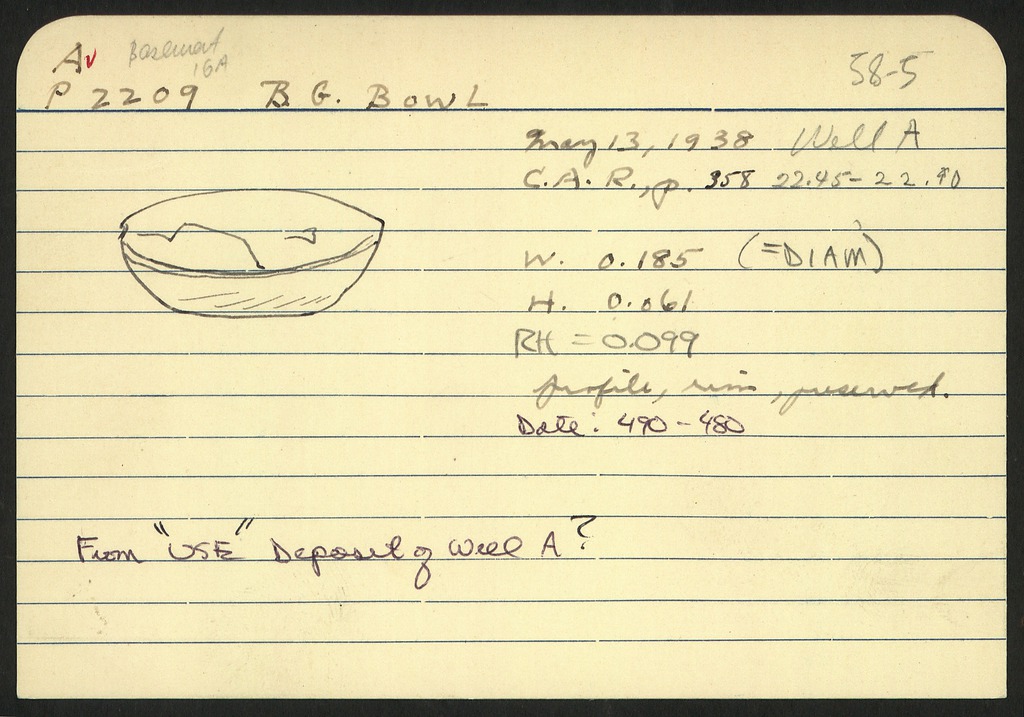 A✓ Basement 16A
58-5
P 2209 B. G. BOWL
May 13, 1938 Well A
C.A.R., p. 358 22.45-22.90
W. 0.185 (=DIAM)
H. 0.061
RH = 0.099
profile, rim, preserved.
Date: 490-480
From "USE" Deposit of Well A?